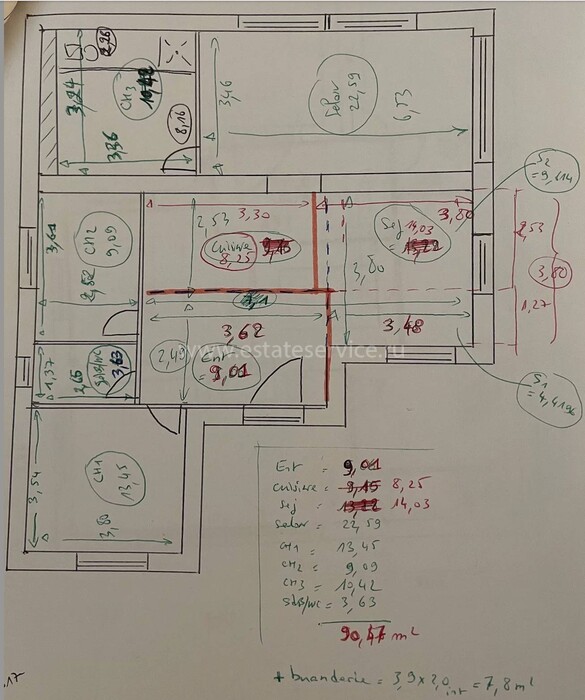 2,26
CH3
10,42
3,24
3,36
8,16
3,46
Salon
22,59
6,53
S2
= 9,614
3,30
2,53
3,80
Sej
14,03
13,22
Cuisine
8,25
3,61
CH2
9,09
2,52
3,80
2,53
3,80
1,27
3,62
3,48
2,49
= 9,01
www.estateservice.ru
1,37
2,65
SdB/WC
3,63
S1
= 4,4196
CH1
13,45
3,54
3,80
Ent = 9,01
Cuisine = 8,15 8,25
Sej = 13,22 14,03
Salon = 22,59
CH1 = 13,45
CH2 = 9,09
CH3 = 10,42
SdB/WC = 3,63
90,47 m²
+ buanderie = 3,9 x 2,0 int = 7,8 m²
,17